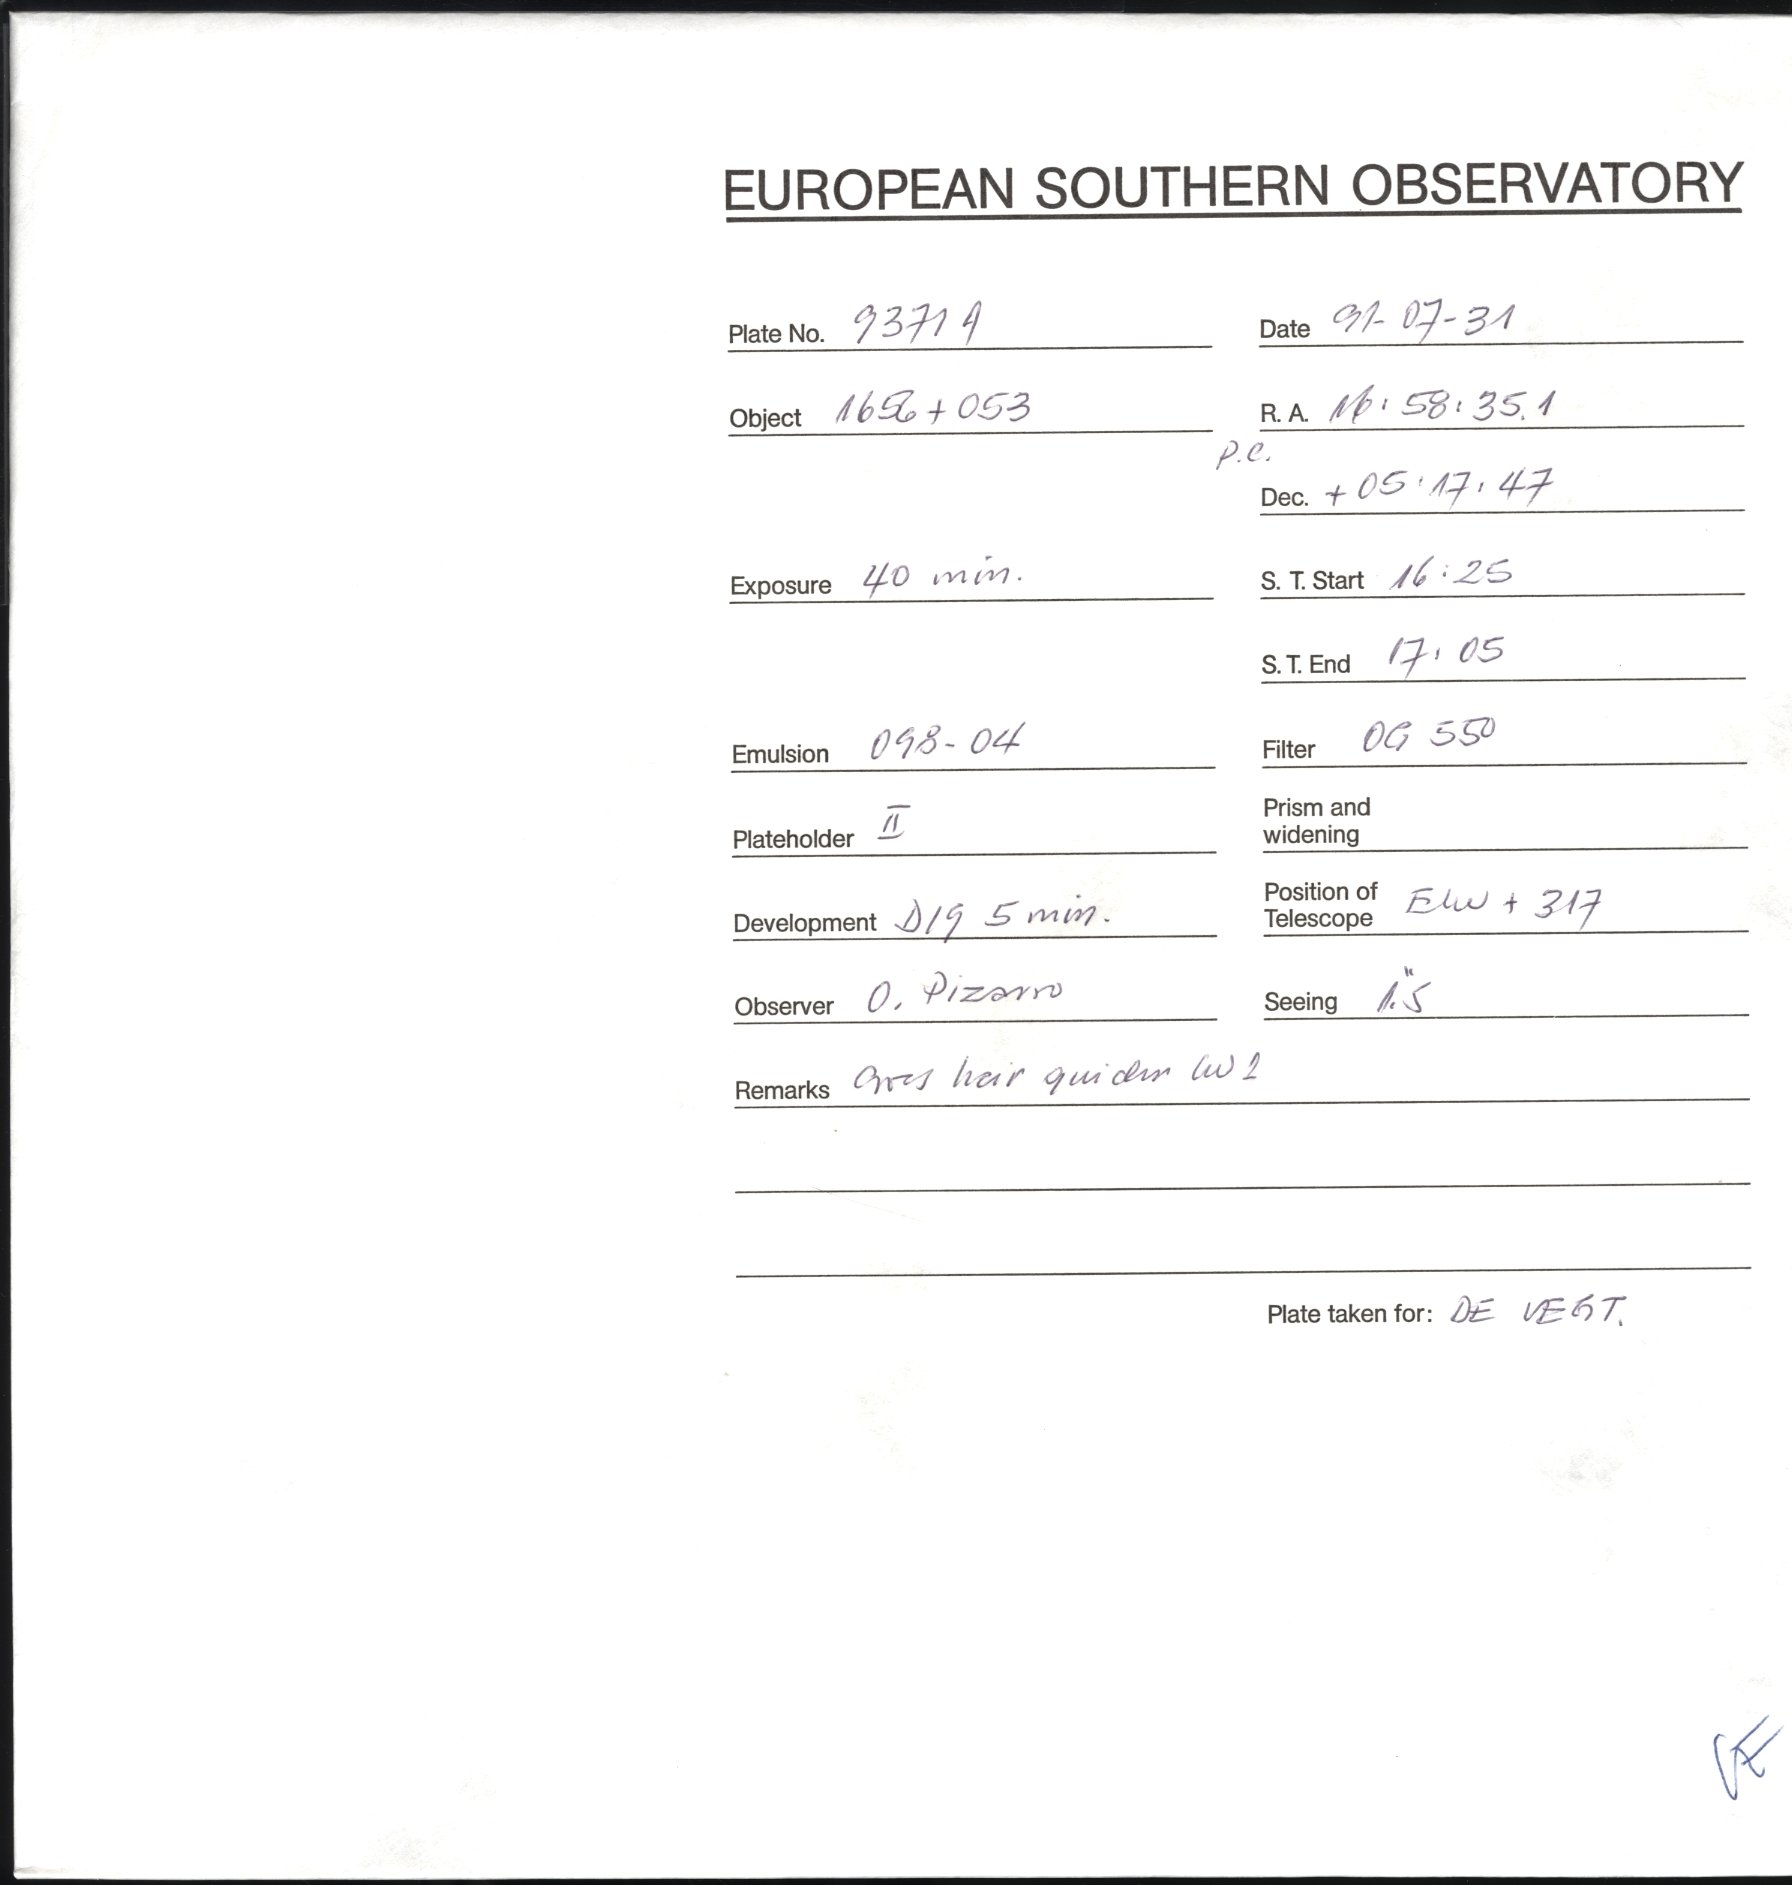 EUROPEAN SOUTHERN OBSERVATORY
Plate No. 9371 A Date 91-07-31
Object 1656+053 R. A. 16:58:35.1
P.C.
Dec. +05:17:47
Exposure 40 min. S. T. Start 16:25
S. T. End 17:05
Emulsion 098-04 Filter OG 550
Plateholder II Prism and widening
Development D19 5 min. Position of Telescope + 317
Observer O. Pizarro Seeing 1.5"
Remarks hair
Plate taken for: DE VEGT.